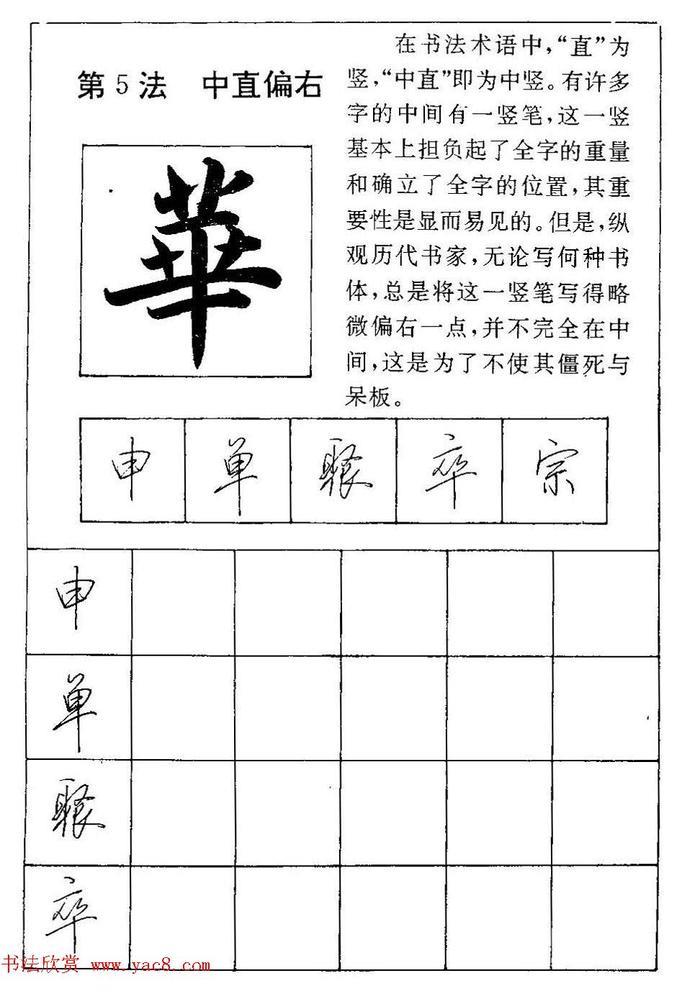 第5法 中直偏右
在书法术语中,“直”为
竖,“中直”即为中竖。有许多
字的中间有一竖笔,这一竖
基本上担负起了全字的重量
和确立了全字的位置,其重
要性是显而易见的。但是,纵
观历代书家,无论写何种书
体,总是将这一竖笔写得略
微偏右一点,并不完全在中
间,这是为了不使其僵死与
呆板。
華
申 单 聚 卒 宗
申
单
聚
卒
书法欣赏 www.yac8.com